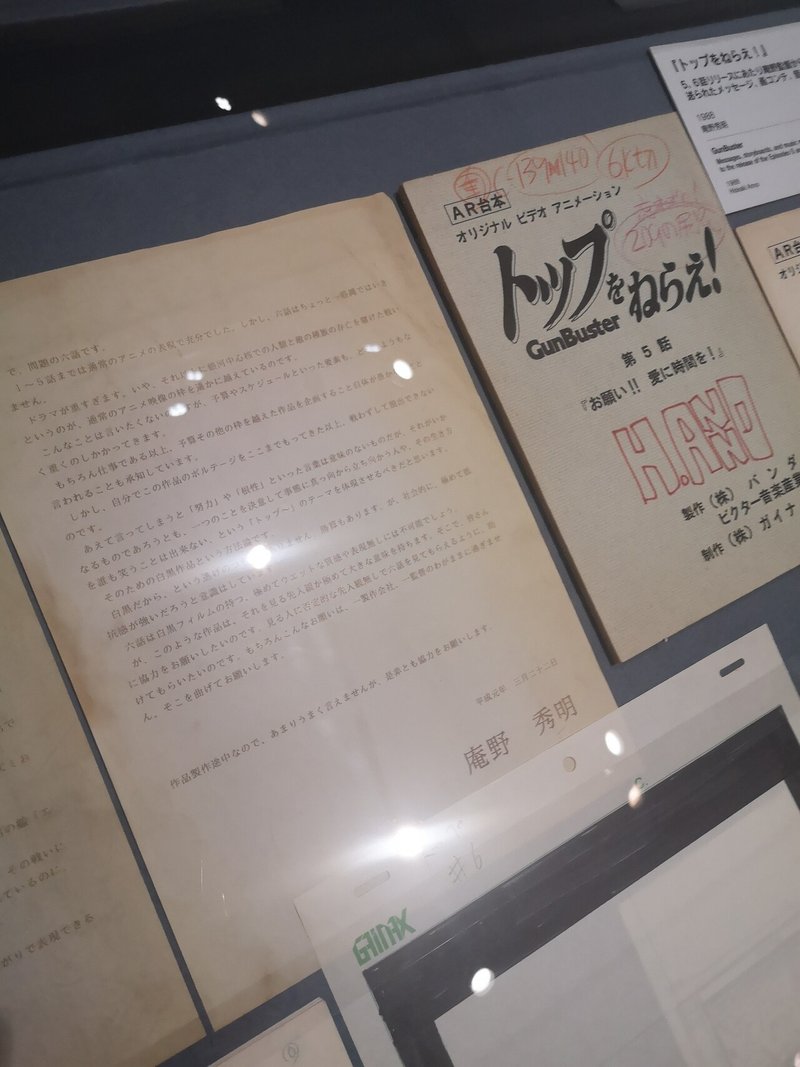 で、問題の六話です。
1〜5話までは通常のアニメの表現で充分でした。しかし、六話はちょっと一筋縄ではいき
ません。
ドラマが重すぎます。いや、それ以上に銀河中心核での人類と敵の種族の存亡を賭けた戦い
というのが、通常のアニメ映像の枠を遥かに越えているのです。
こんなことは言いたくない が、予算やスケジュールといった要素も、 ようもな
く重くのしかかってきます。
もちろん仕事である以上、予算その他の枠を越えた作品を企画すること自体が愚か
言われることも承知しています。
しかし、自分でこの作品のボルテージをここまでもってきた以上、戦わずして脱出できない
のです。
あえて言ってしまうと「努力」や「根性」といった言葉は意味のないものだが、それがいか
なるものであろうとも、一つのことを決意して事態に真っ向から立ち向かう人や、その生き方
を誰も笑うことは出来ない、という「トップ〜」のテーマを体現させるべきだと思います。
そのための白黒作品という方法論です。
白黒だから、という逃げの ません。勝算もあります。が、社会的に、極めて抵
抗感が強いだろうと意識はしてい
六話は白黒フィルムの持つ、極めてウェットな質感や表現無しには不可能でしょう。
が、このような作品は、それを見る先入観が極めて大きな意味を持ちます。そこで、皆さん
に協力をお願いしたいのです。見る人に否定的な先入観無しで六話を見てもらえるように、助
けてもらいたいのです。もちろんこんなお願いは、一製作会社、一監督のわがままに過ぎませ
ん。そこを曲げてお願いします。
作品製作途中なので、あまりうまく言えませんが、是非とも協力をお願いします。
平成元年 三月二十二日
庵野 秀明
139M140
6Kセリ
AR台本
オリジナル ビデオ アニメーション
トップをねらえ!
GunBuster
第5話
『お願い!! 愛に時間を!』
H.ANNO
製作 (株) バンダ
ビクター音楽産業
制作 (株) ガイナ
『トップをねらえ!』
5、6話リリースにあたり庵野監督か
送られたメッセージ、画コンテ、
1988
庵野秀明
GunBuster
Messages, storyboards, and music
to the release of the Episodes 5 a
1988
Hideaki Anno
AR台
オリジ
#6
GAINAX
その戦いに
ているのに
がりで表現できる